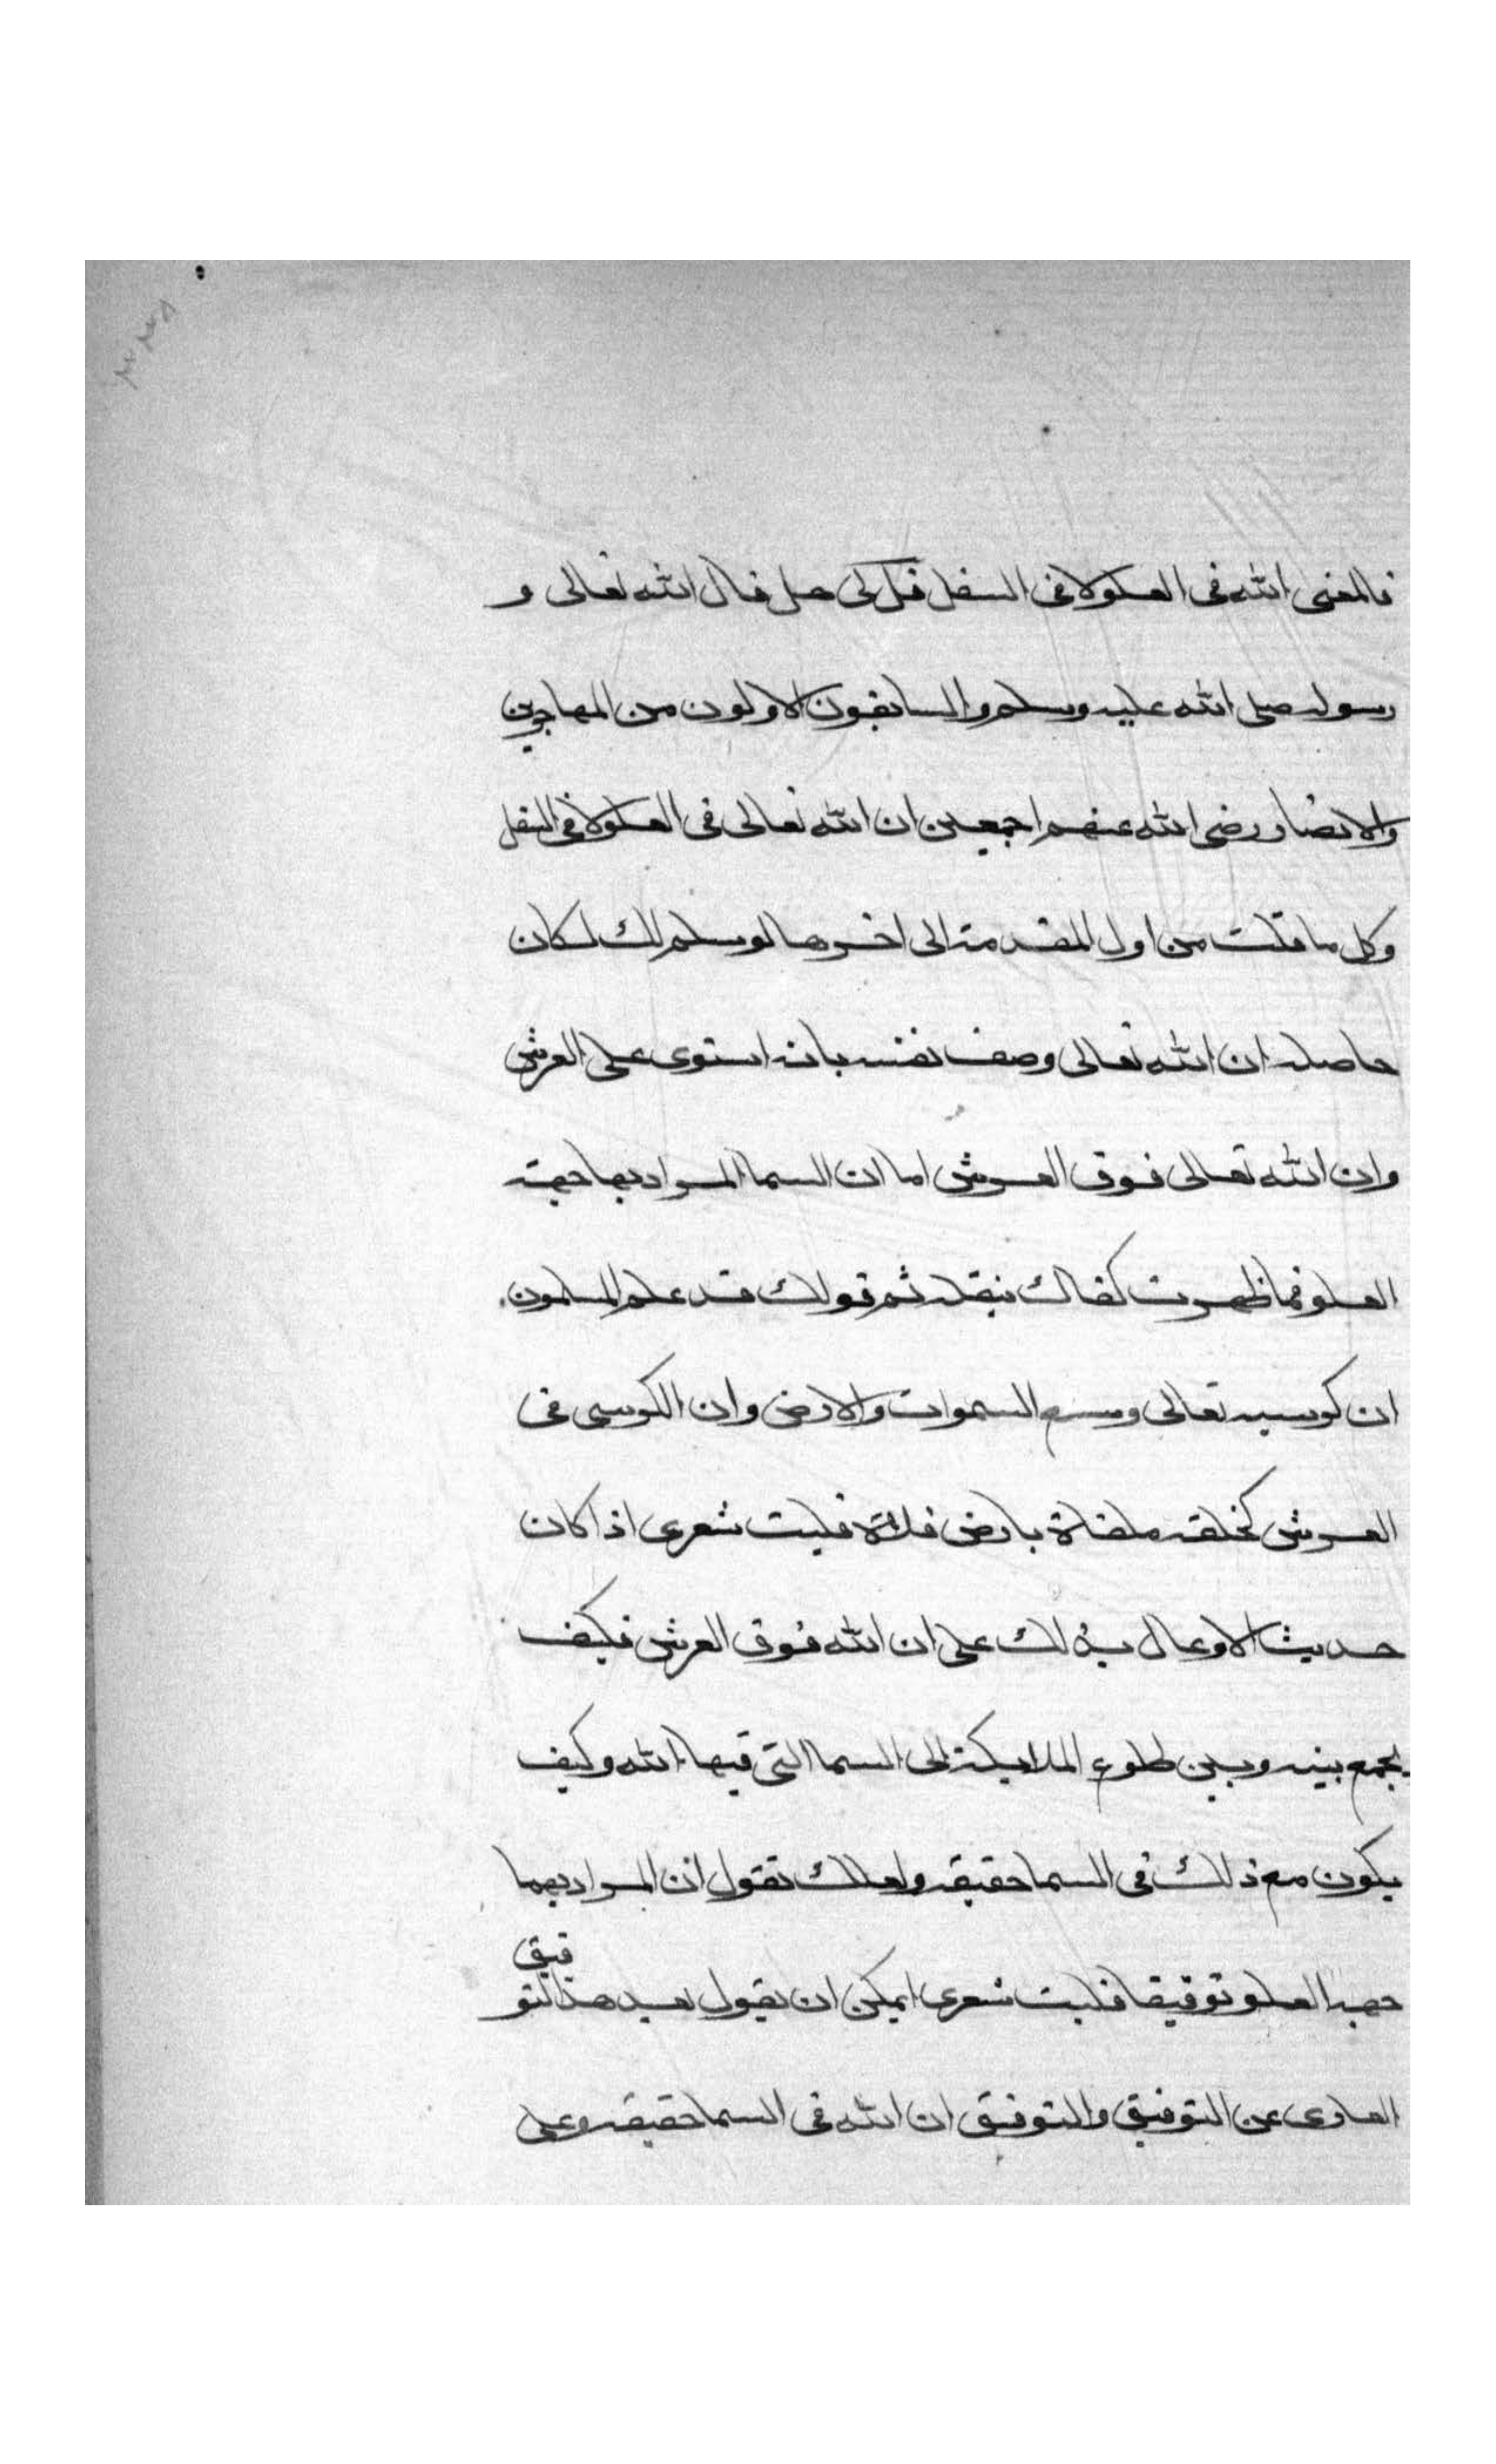 ٣٣٨
فالمعنى الله فى العلو لا فى السفل فقل لى هل قال الله تعالى و
رسوله صلى الله عليه وسلم والسابقون الاولون من المهاجرين
والانصار رضى الله عنهم اجمعين ان الله تعالى فى العلو لا فى السفل
وكل ما قلت من اول المقدمة الى اخرها لو سلم لك لكان
حاصله ان الله تعالى وصف نفسه بانه استوى على العرش
وان الله تعالى فوق العرش اما ان السما المراد بها جهة
العلو فما ظهرت كفاك بنقله ثم قولك قد علم المسلمون
ان كرسيه تعالى وسع السموات والارض وان الكرسى فى
العرش كحلقة ملقاة بارض فلاة فليت شعرى اذا كان
حديث الاوعال يدلك على ان الله فوق العرش فكيف
يجمع بينه وبين طلوع الملايكة الى السما التى فيها الله وكيف
يكون مع ذلك فى السما حقيقة ولعلك تقول ان المراد بهما
جهة العلو توفيقا فليت شعرى ايمكن ان يقول بعد هذا التو
فيق
العارى عن التوفيق والتوفيق ان الله فى السما حقيقة وعلى